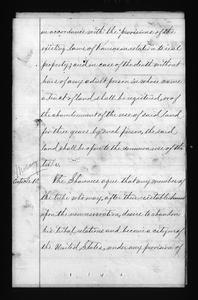 in accordance with the provisions of the
existing laws of Kansas in relation to real
property; and in case of the death without
heirs of any adult person in whose name
a tract of land shall be registered, or of
the abandonment of the use of said land
for three years by such person, the said
land shall be open to the common use of the
tribe.
The Shawnees agree that any member of
the tribe who may, after their establishment
upon the new reservation, desire to abandon
his tribal relations and become a citizen of
the United States, under any provision of